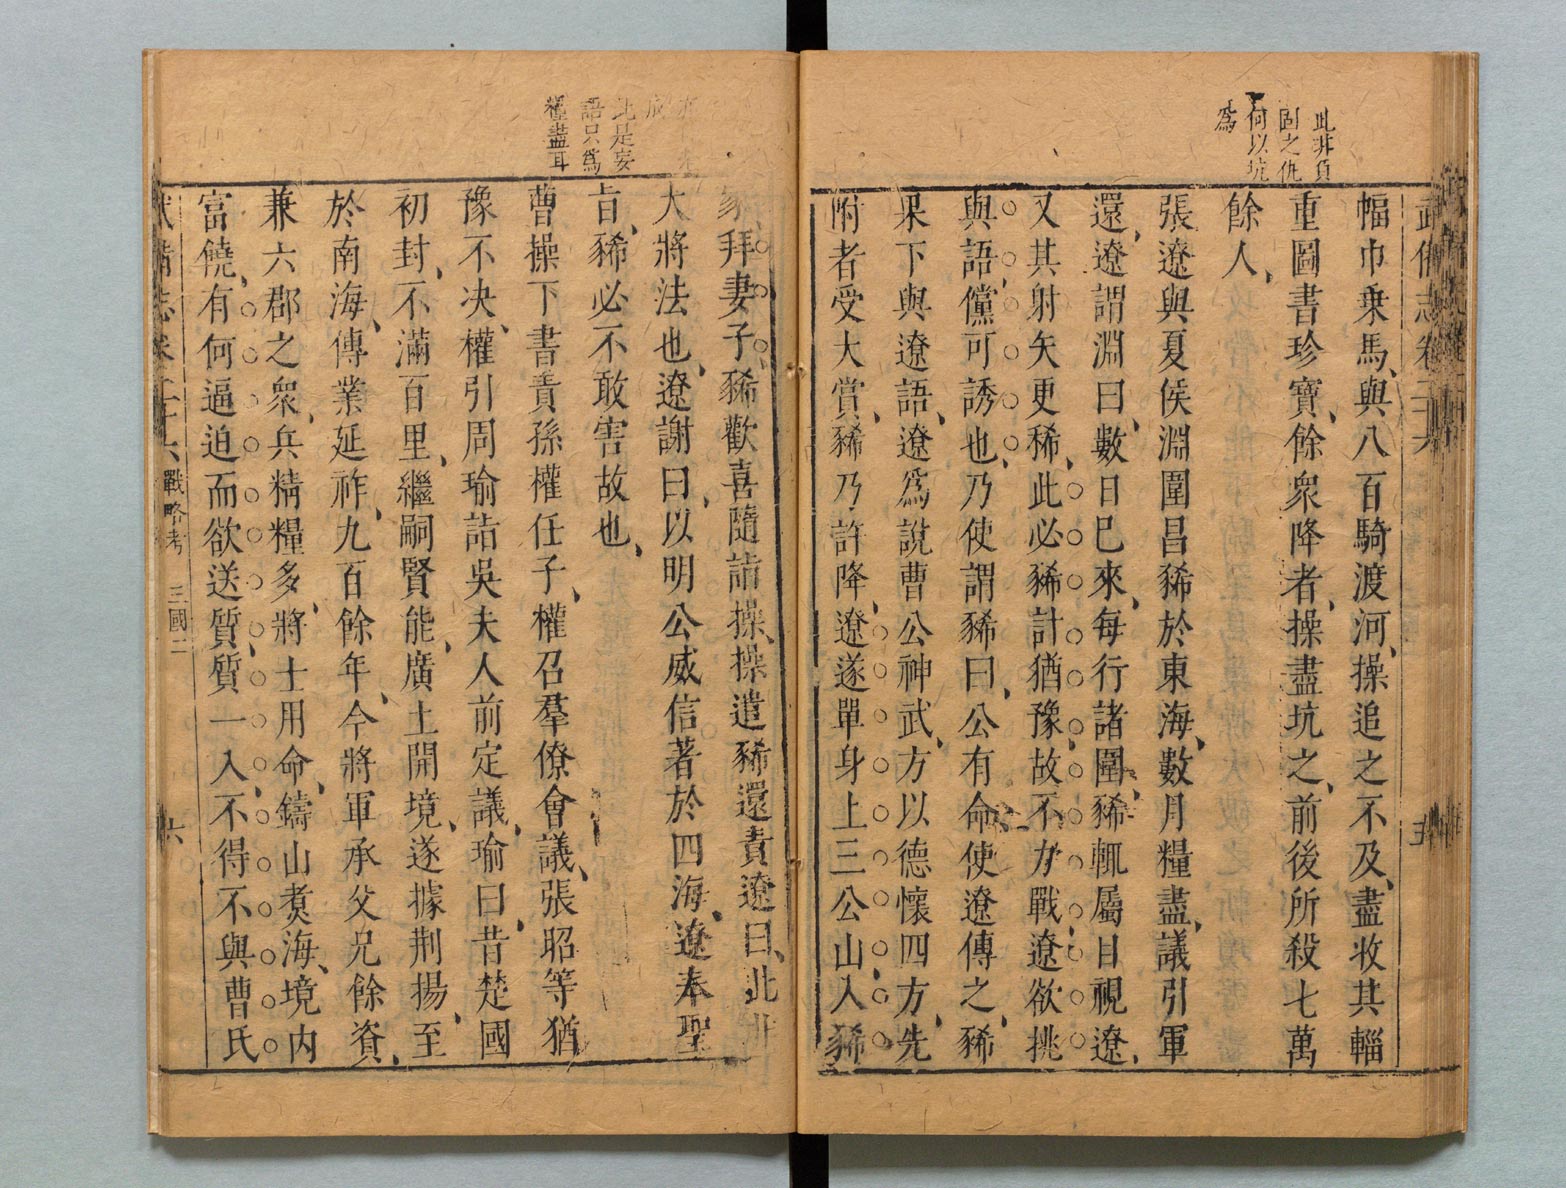 此非負
固之仇
何以坑
爲
武備志卷二十六
五
幅巾乘馬與八百騎渡河操追之不及盡收其輜
重圖書珍寶餘衆降者操盡坑之前後所殺七萬
餘人
張遼與夏侯淵圍昌豨於東海數月糧盡議引軍
還遼謂淵曰數日已來每行諸圍豨輒屬目視遼
又其射矢更稀此必豨計猶豫故不力戰遼欲挑
與語儻可誘也乃使謂豨曰公有命使遼傳之豨
果下與遼語遼爲說曹公神武方以德懷四方先
附者受大賞豨乃許降遼遂單身上三公山入豨
此是妄
語只爲
糧盡耳
家拜妻子豨歡喜隨詣操操遣豨還責遼曰此非
大將法也遼謝曰以明公威信著於四海遼奉聖
旨豨必不敢害故也
曹操下書責孫權任子權召羣僚會議張昭等猶
豫不决權引周瑜詣吳夫人前定議瑜曰昔楚國
初封不滿百里繼嗣賢能廣土開境遂據荆揚至
於南海傳業延祚九百餘年今將軍承父兄餘資
兼六郡之衆兵精糧多將士用命鑄山煑海境内
富饒有何逼迫而欲送質質一入不得不與曹氏
武備志卷二十六 戰略考 三國二 六